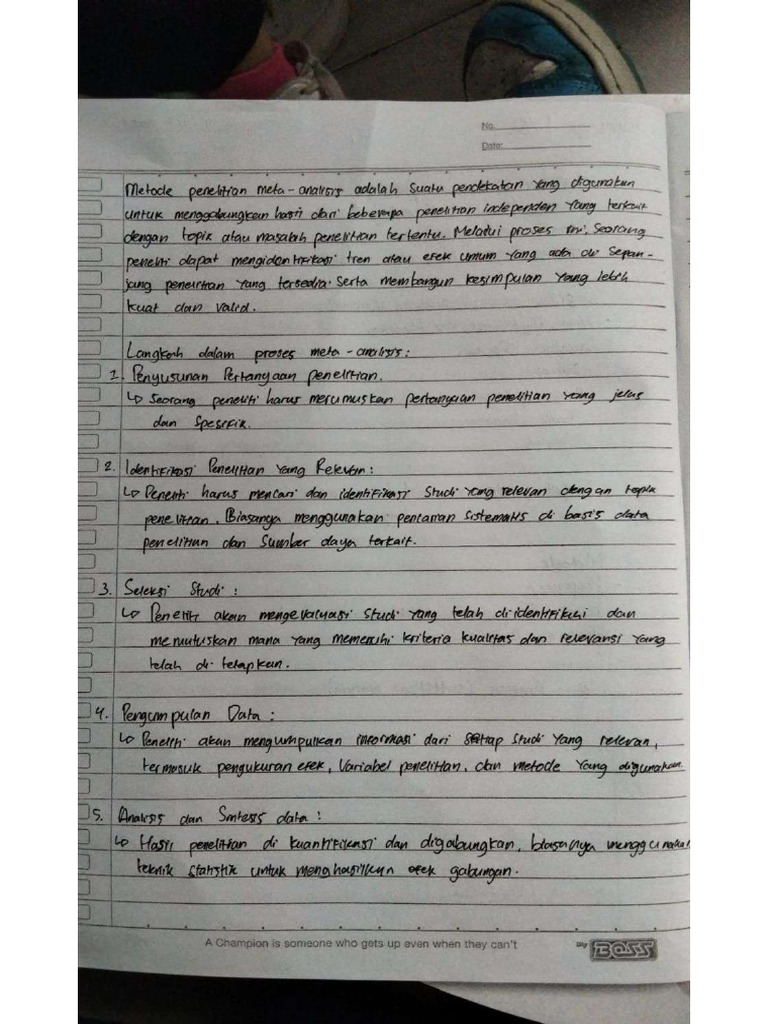 No.
Date:
Metode penelitian meta-analisis adalah suatu pendekatan yang digunakan
untuk menggabungkan hasil dari beberapa penelitian independen yang terkait
dengan topik atau masalah penelitian tertentu. Melalui proses ini, seorang
peneliti dapat mengidentifikasi tren atau efek umum yang ada di sepan-
jang penelitian yang tersedia. serta membangun kesimpulan yang lebih
kuat dan valid.
Langkah dalam proses meta-analisis:
1. Penyusunan Pertanyaan penelitian.
↳ Seorang peneliti harus merumuskan pertanyaan penelitian yang jelas
dan spesifik.
2. Identifikasi Penelitian Yang Relevan:
↳ Peneliti harus mencari dan identifikasi studi yang relevan dengan topik
penelitian. Biasanya menggunakan pencarian sistematis di basis data
penelitian dan sumber daya terkait.
3. Seleksi Studi:
↳ Peneliti akan mengevaluasi studi yang telah diidentifikasi dan
memutuskan mana yang memenuhi kriteria kualitas dan relevansi yang
telah di tetapkan.
4. Pengumpulan Data:
↳ Peneliti akan mengumpulkan informasi dari setiap studi yang relevan,
termasuk pengukuran efek, Variabel penelitian, dan metode yang digunakan
5. Analisis dan Sintesis data:
↳ Hasil penelitian di kuantifikasi dan digabungkan, biasanya menggunakan
teknik statistik untuk menghasilkan efek gabungan.
A Champion is someone who gets up even when they can't
By BOSS